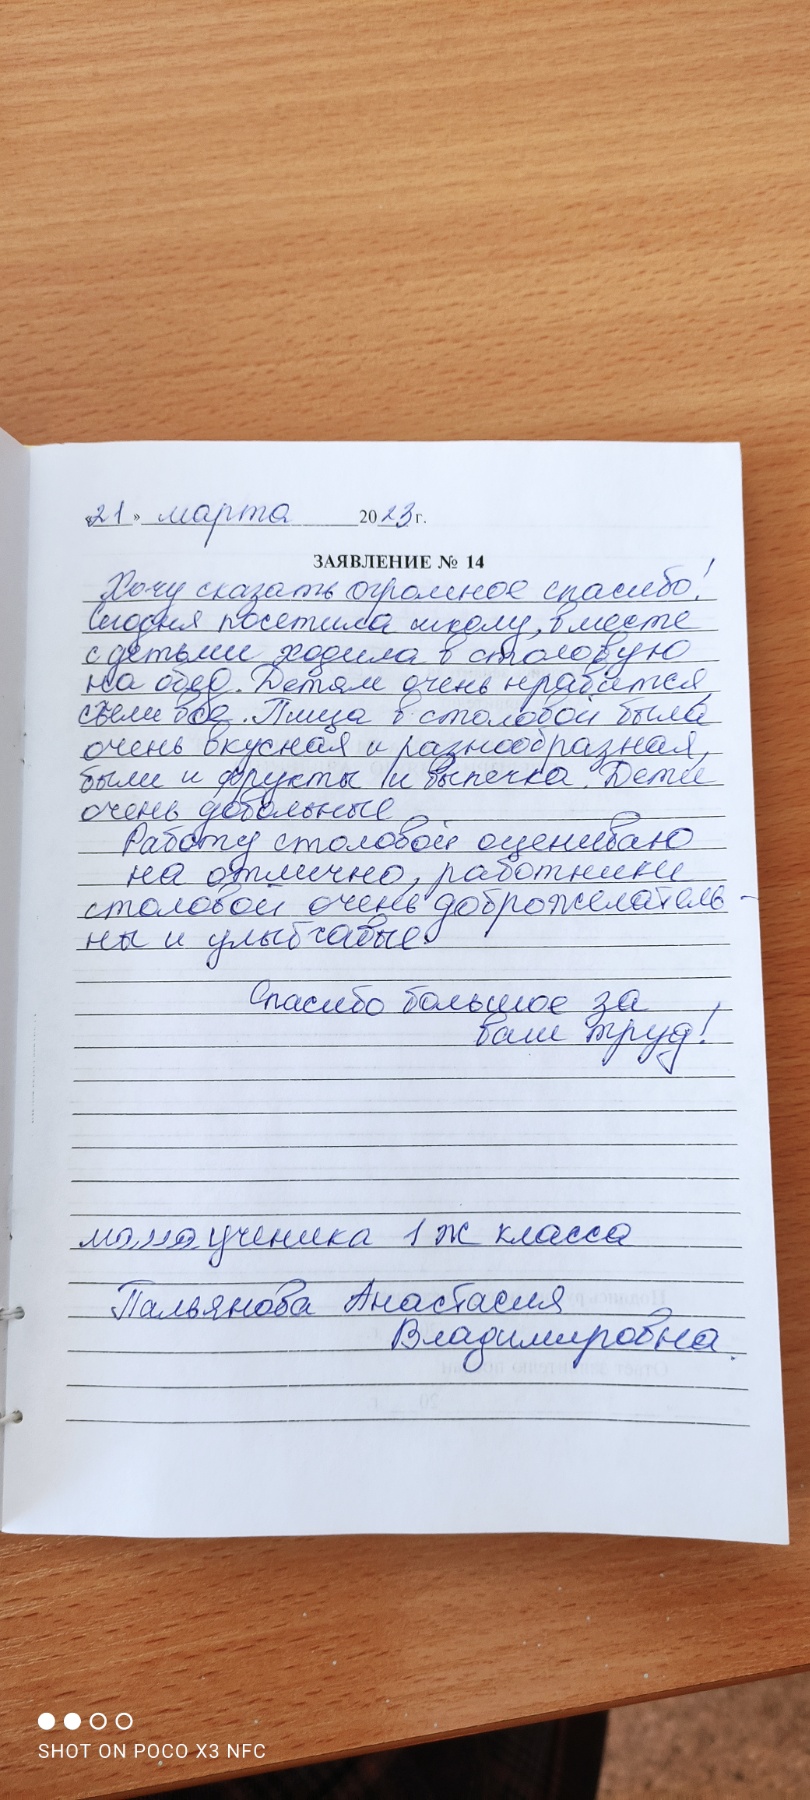 «21» марта 2023 г.
ЗАЯВЛЕНИЕ № 14
Хочу сказать огромное спасибо!
Сегодня посетила школу, вместе
с детьми ходила в столовую
на обед. Детям очень нравится,
съели все. Пища в столовой была
очень вкусная и разнообразная,
были и фрукты и выпечка. Дети
очень довольные
Работу столовой оцениваю
на отлично, работники
столовой очень доброжелатель-
ны и улыбчавые.
Спасибо большое за
ваш труд!
мама ученика 1 Ж класса
Пальянова Анастасия
Владимировна.
SHOT ON POCO X3 NFC